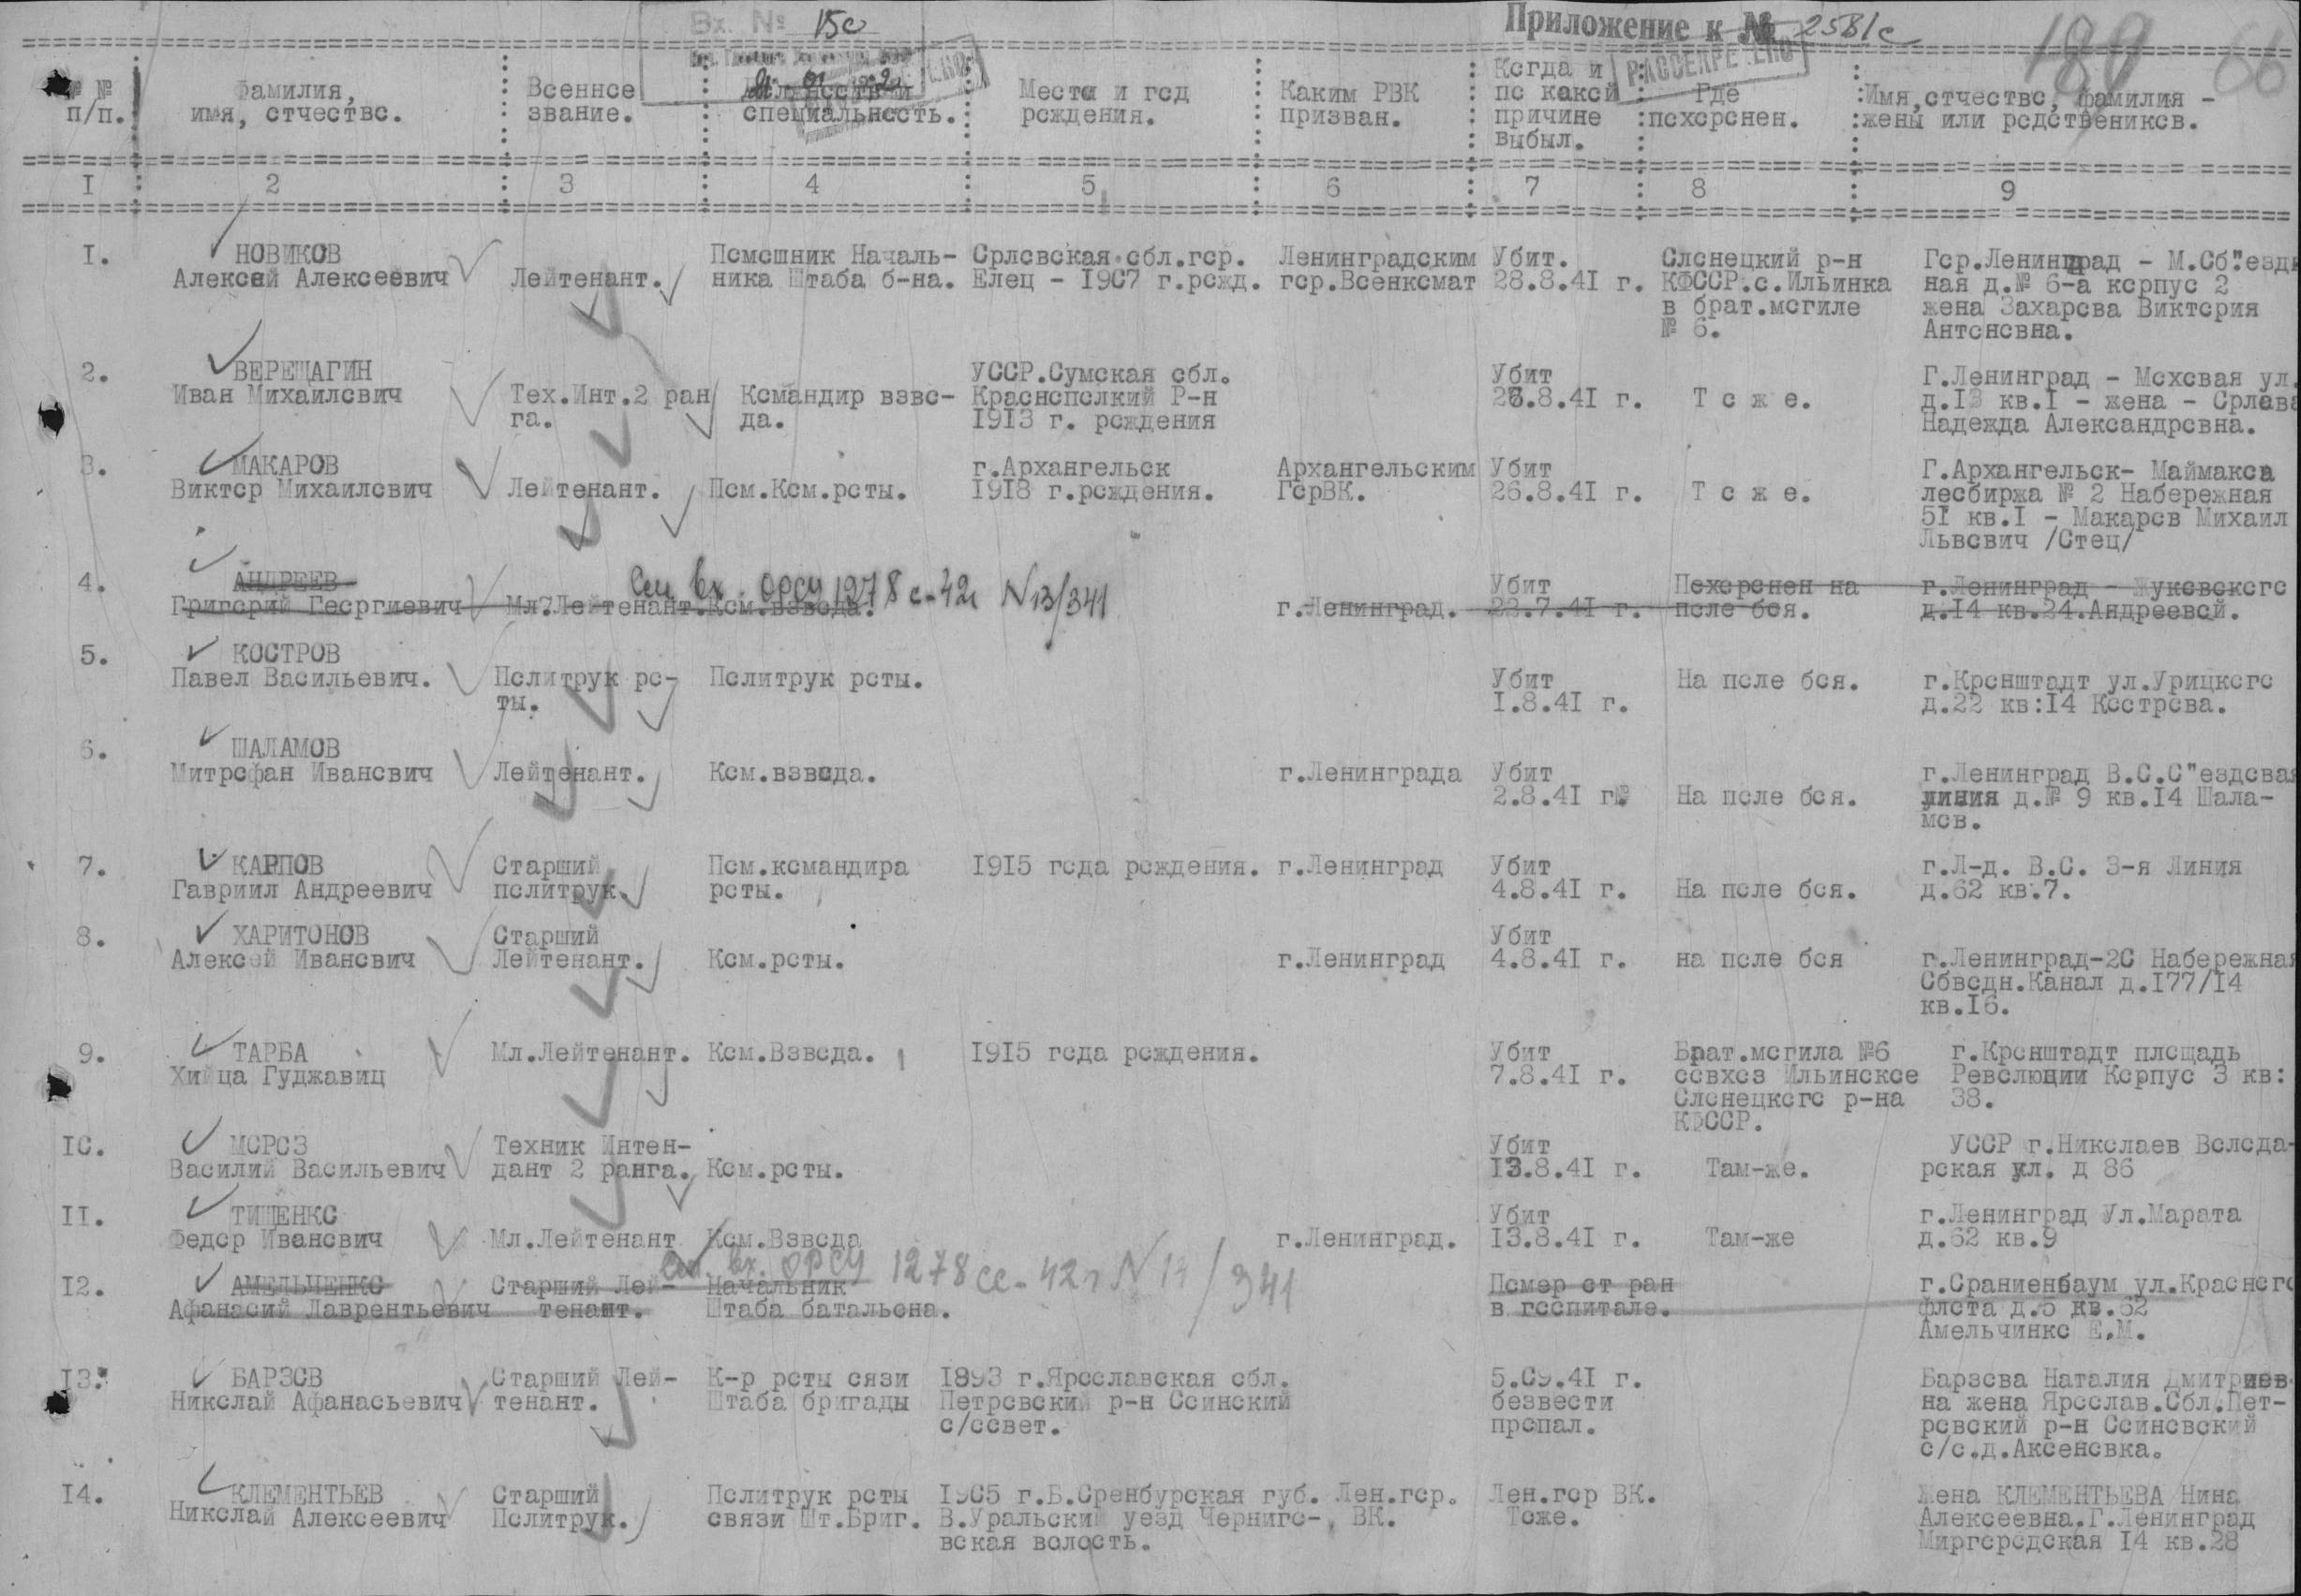 Вх. № 15с
Приложение к № 2581с
189 66
РАССЕКРЕЧЕНО
№ № п/п. Фамилия, имя, отчество. Военное звание. Должность и специальность. Место и год рождения. Каким РВК призван. Когда и по какой причине выбыл. Где похоронен. Имя, отчество, фамилия - жены или родствеников.
I 2 3 4 5 6 7 8 9
I. НОВИКОВ Помошник Началь- Орловская обл.гор. Ленинградским Убит. Олонецкий р-н Гор.Ленинград - М.Об"езд-
Алексей Алексеевич Лейтенант. ника Штаба б-на. Елец - I907 г.рожд. гор.Военкомат 28.8.4I г. КФССР.с.Ильинка ная д.№ 6-а корпус 2
в брат.могиле жена Захарова Виктория
№ 6. Антоновна.
2. ВЕРЕЩАГИН УССР.Сумская обл. Убит Г.Ленинград - Моховая ул.
Иван Михаилович Тех.Инт.2 ран Командир взво- Краснополкий Р-н 26.8.4I г. Т о ж е. д.I3 кв.I - жена - Орлова
га. да. I9I3 г. рождения Надежда Александровна.
3. МАКАРОВ г.Архангельск Архангельским Убит Г.Архангельск- Маймакса
Виктор Михаилович Лейтенант. Пом.Ком.роты. I9I8 г.рождения. ГорВК. 26.8.4I г. Т о ж е. лесбиржа № 2 Набережная
5I кв.I - Макаров Михаил
Львович /Отец/
4. АНДРЕЕВ См вх. ОРСУ 1278с-42г N13/341 Убит Похоронен на г.Ленинград - Жуковского
Григорий Георгиевич Мл.Лейтенант. Ком.взвода. г.Ленинград. 22.7.4I г. поле боя. д.I4 кв.24.Андреевой.
5. КОСТРОВ
Павел Васильевич. Политрук ро- Политрук роты. Убит На поле боя. г.Кронштадт ул.Урицкого
ты. I.8.4I г. д.22 кв:I4 Кострова.
6. ШАЛАМОВ
Митрофан Иванович Лейтенант. Ком.взвода. г.Ленинграда Убит г.Ленинград В.О.С"ездовая
2.8.4I г. На поле боя. линия д.№ 9 кв.I4 Шала-
мов.
7. КАРПОВ Старший Пом.командира I9I5 года рождения. г.Ленинград Убит г.Л-д. В.О. 3-я Линия
Гавриил Андреевич политрук. роты. 4.8.4I г. На поле боя. д.62 кв.7.
8. ХАРИТОНОВ Старший Убит
Алексей Иванович Лейтенант. Ком.роты. г.Ленинград 4.8.4I г. на поле боя г.Ленинград-20 Набережная
Обводн.Канал д.I77/I4
кв.I6.
9. ТАРБА Мл.Лейтенант. Ком.Взвода. I9I5 года рождения. Убит Брат.могила №6 г.Кронштадт площадь
Хийца Гуджавиц 7.8.4I г. совхоз Ильинское Революции Корпус 3 кв:
Олонецкого р-на 38.
КФССР.
I0. МОРОЗ Техник Интен- Убит УССР г.Николаев Волода-
Василий Васильевич дант 2 ранга. Ком.роты. I3.8.4I г. Там-же. рская ул. д 86
II. ТИЩЕНКО Убит г.Ленинград Ул.Марата
Федор Иванович Мл.Лейтенант Ком.Взвода г.Ленинград. I3.8.4I г. Там-же д.62 кв.9
См. вх. ОРСУ 1278сс-42г N14/341
I2. АМЕЛЬЧЕНКО Старший Лей- Начальник Помер от ран г.Ораниенбаум ул.Красного
Афанасий Лаврентьевич тенант. Штаба батальона. в госпитале. флота д.5 кв.62
Амельчинко Е.М.
I3. БАРЗОВ Старший Лей- К-р роты сязи I893 г.Ярославская обл. 5.09.4I г. Барзова Наталия Дмитриев-
Николай Афанасьевич тенант. Штаба бригады Петровский р-н Осинский безвести на жена Ярослав.Обл.Пет-
с/совет. пропал. ровский р-н Осиновский
с/с.д.Аксеновка.
I4. КЛЕМЕНТЬЕВ Старший Политрук роты I905 г.Б.Оренбурская губ. Лен.гор. Лен.гор ВК. Жена КЛЕМЕНТЬЕВА Нина
Николай Алексеевич Политрук. связи Шт.Бриг. В.Уральский уезд Черниго- ВК. Тоже. Алексеевна.Г.Ленинград
вская волость. Миргородская I4 кв.28